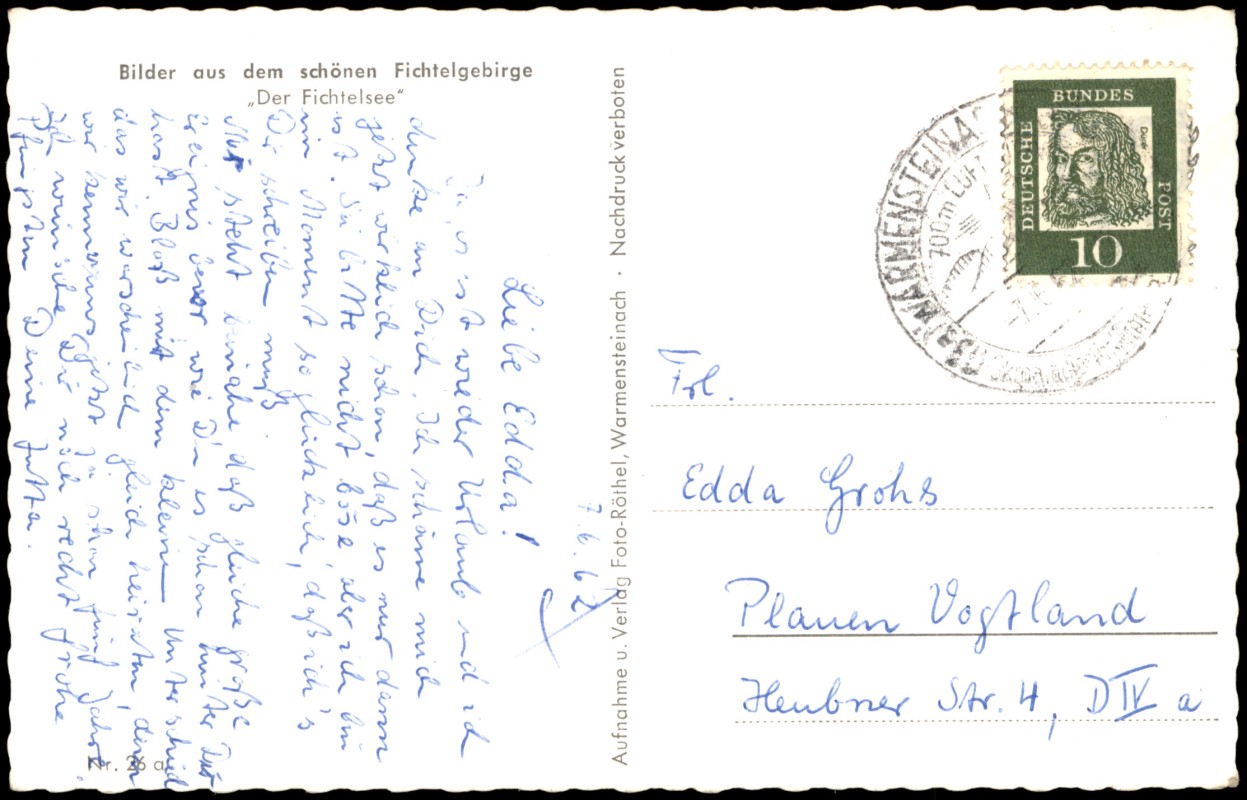 Bilder aus dem schönen Fichtelgebirge
„Der Fichtelsee“
7.6.62
Liebe Edda!
Ja, es ist wieder Urlaub und ich
denke an Dich. Ich schäme mich
jetzt wirklich schon, daß es nur dann
ist. Sei bitte nicht böse aber ich bin
im Moment so glücklich, daß ich's
Dir schreiben muß
Mir steht beinahe daß gleiche große
Ereignis bevor wie Du es schon hinter Dir
hast. Bloß mit dem kleinen Unterschied
das wir warscheinlich gleich heiraten, denn
wir kennen uns jetzt ja schon fünf Jahre.
Ich wünsche Dir noch recht frohe
Pfingsten Deine Jutta.
Nr. 26 a
Aufnahme u. Verlag Foto-Röthel, Warmensteinach · Nachdruck verboten
DEUTSCHE
BUNDES
POST
Dürer
10
WARMENSTEINACH
700m LUFT
Frl.
Edda Grohs
Plauen Vogtland
Heubner Str. 4, D IV a